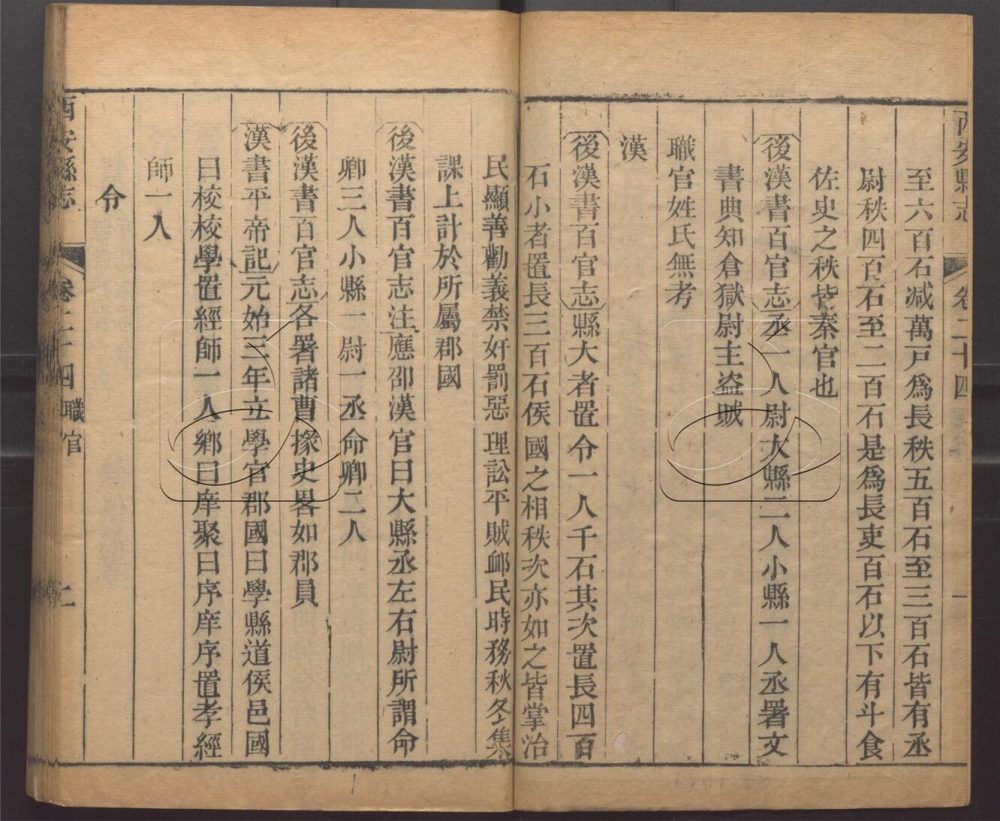 西安縣志
卷二十四
一
至六百石减萬戸爲長秩五百石至三百石皆有丞
尉秩四百石至二百石是爲長吏百石以下有斗食
佐史之秩皆秦官也
後漢書百官志丞一人尉大縣二人小縣一人丞署文
書典知倉獄尉主盗賊
職官姓氏無考
漢
後漢書百官志縣大者置令一人千石其次置長四百
石小者置長三百石侯國之相秩次亦如之皆掌治
民顯善勸義禁奸罰惡理訟平賊邮民時務秋冬集
課上計於所屬郡國
後漢書百官志注應邵漢官曰大縣丞左右尉所謂命
卿三人小縣一尉一丞命卿二人
後漢書百官志各署諸曹掾史畧如郡員
漢書平帝記元始三年立學官郡國曰學縣道侯邑國
曰校校學置經師一人鄉曰庠聚曰序庠序置孝經
師一人
令
西安縣志
卷二十四
職官